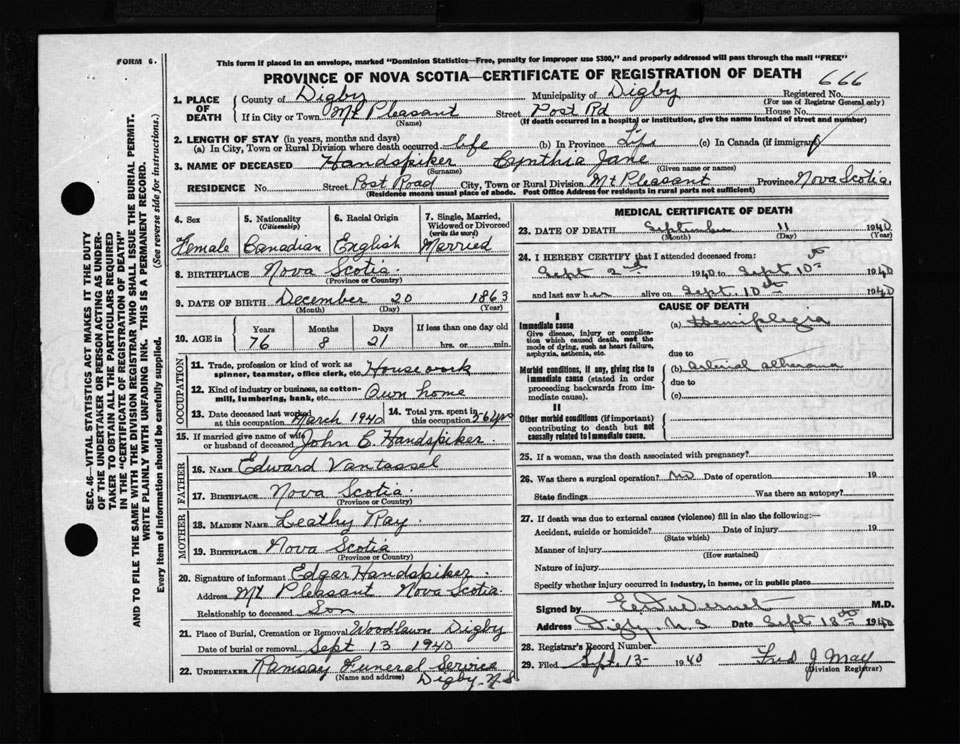 FORM 6.
This form if placed in an envelope, marked "Dominion Statistics—Free, penalty for improper use $300," and properly addressed will pass through the mail "FREE"
PROVINCE OF NOVA SCOTIA—CERTIFICATE OF REGISTRATION OF DEATH
666
1. PLACE OF DEATH
County of Digby Municipality of Digby Registered No.
(For use of Registrar General only)
If in City or Town Mt Pleasant Street Post Rd House No.
(Name) (If death occurred in a hospital or institution, give the name instead of street and number)
2. LENGTH OF STAY (in years, months and days)
(a) In City, Town or Rural Division where death occurred life (b) In Province Life (c) In Canada (if immigrant)
3. NAME OF DECEASED Handspiker Cynthia Jane
(Surname) (Given name or names)
RESIDENCE No. Street Post Road City, Town or Rural Division Mt Pleasant Province Nova Scotia
(Residence means usual place of abode. Post Office Address for residents in rural parts not sufficient)
SEC. 46—VITAL STATISTICS ACT MAKES IT THE DUTY
OF THE UNDERTAKER OR PERSON ACTING AS UNDER-
TAKER TO OBTAIN ALL THE PARTICULARS REQUIRED
IN THE "CERTIFICATE OF REGISTRATION OF DEATH"
AND TO FILE THE SAME WITH THE DIVISION REGISTRAR WHO SHALL ISSUE THE BURIAL PERMIT.
WRITE PLAINLY WITH UNFADING INK. THIS IS A PERMANENT RECORD.
Every item of information should be carefully supplied. (See reverse side for instructions.)
4. Sex
Female
5. Nationality
(Citizenship)
Canadian
6. Racial Origin
English
7. Single, Married,
Widowed or Divorced
(write the word)
Married
8. BIRTHPLACE Nova Scotia
(Province or Country)
9. DATE OF BIRTH December 20 1863
(Month) (Day) (Year)
10. AGE in
Years Months Days If less than one day old
76 8 21 hrs. or min.
OCCUPATION
11. Trade, profession or kind of work as
spinner, teamster, office clerk, etc. Housework
12. Kind of industry or business, as cotton-
mill, lumbering, bank, etc. Own home
13. Date deceased last worked
at this occupation March 1940
14. Total yrs. spent in
this occupation 56 yrs
15. If married give name of wife
or husband of deceased John C. Handspiker
FATHER
16. NAME Edward Vantassel
17. BIRTHPLACE Nova Scotia
(Province or Country)
MOTHER
18. MAIDEN NAME Leathy Ray
19. BIRTHPLACE Nova Scotia
(Province or Country)
20. Signature of informant Edgar Handspiker
Address Mt Pleasant Nova Scotia
Relationship to deceased Son
21. Place of Burial, Cremation or Removal Woodlawn Digby
Date of burial or removal Sept 13 1940
22. UNDERTAKER Ramsay Funeral Service
(Name and address) Digby N.S
MEDICAL CERTIFICATE OF DEATH
23. DATE OF DEATH September 11 1940
(Month) (Day) (Year)
24. I HEREBY CERTIFY that I attended deceased from:
Sept 2nd 1940 to Sept 10th 1940
and last saw her alive on Sept. 10th 1940
CAUSE OF DEATH
I
Immediate cause
Give disease, injury or complica-
tion which caused death, not the
mode of dying, such as heart failure,
asphyxia, asthenia, etc.
(a) Hemiplegia
due to
Morbid conditions, if any, giving rise to
immediate cause (stated in order
proceeding backwards from im-
mediate cause).
(b) Arterial atheroma
due to
(c)
II
Other morbid conditions (if important)
contributing to death but not
causally related to immediate cause.
25. If a woman, was the death associated with pregnancy?
26. Was there a surgical operation? No Date of operation 19
State findings Was there an autopsy?
27. If death was due to external causes (violence) fill in also the following:—
Accident, suicide or homicide? Date of injury 19
(State which)
Manner of injury
(How sustained)
Nature of injury
Specify whether injury occurred in industry, in home, or in public place
Signed by M.D.
Address Digby, N.S Date Sept 18th 1940
28. Registrar's Record Number
29. Filed Sept. 13- 1940 Fred J. May
(Division Registrar)